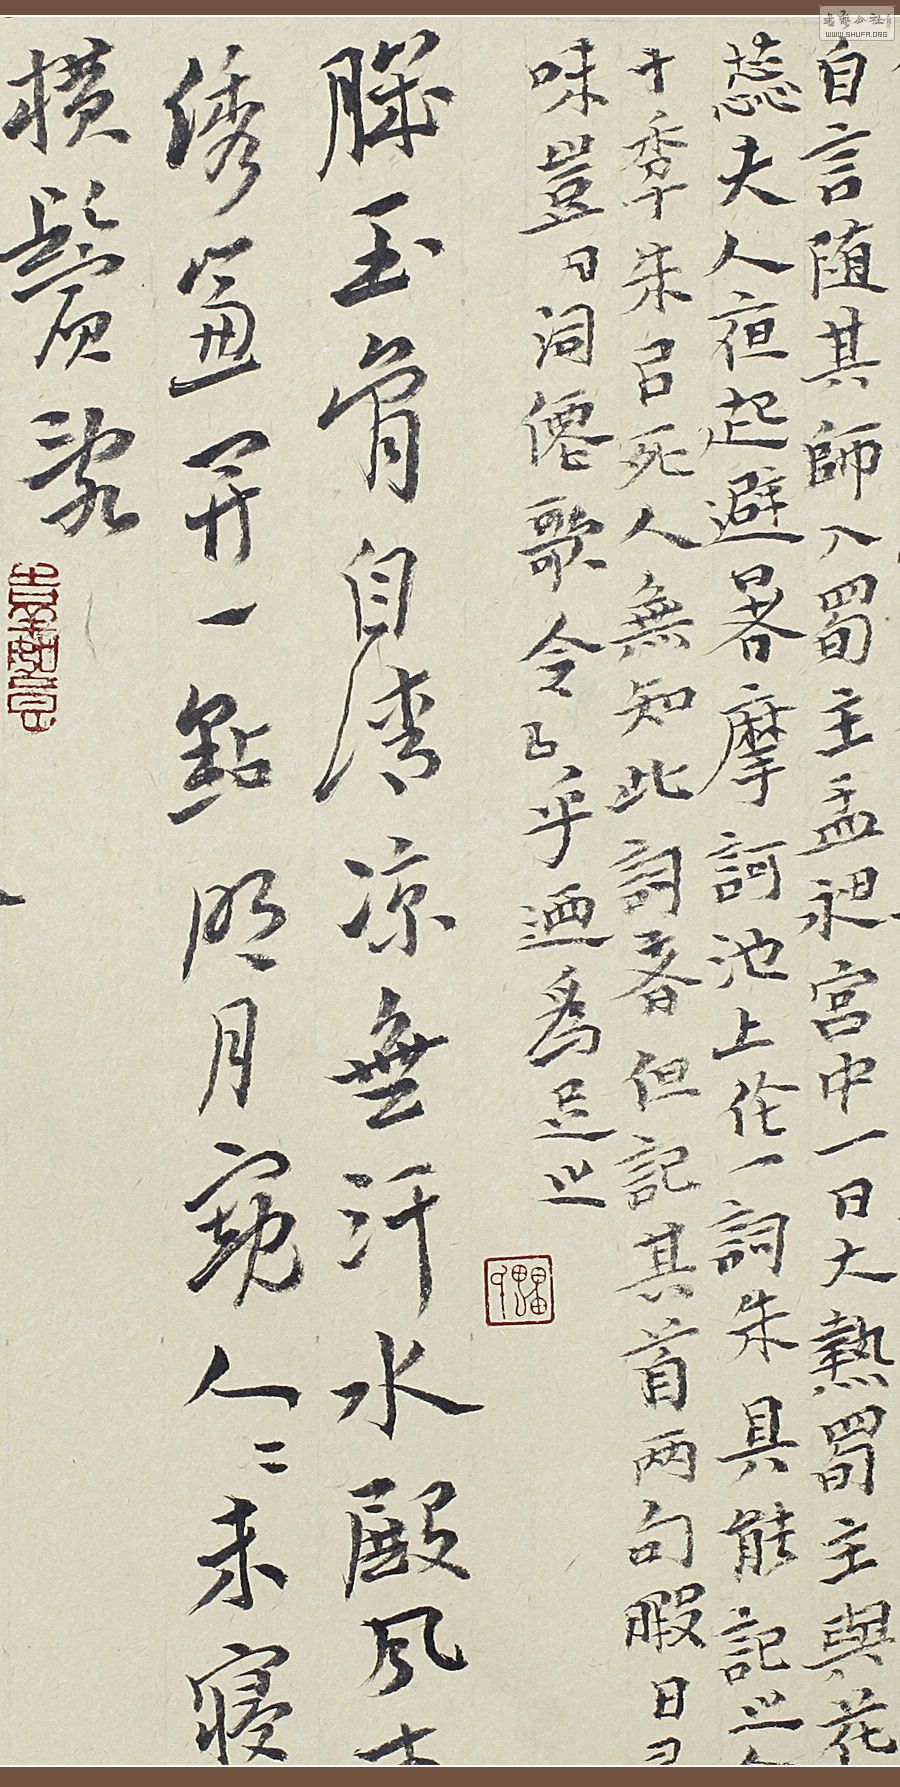 自言随其師入蜀主孟昶宮中一日大熱蜀主與花
蕊夫人夜起避暑摩訶池上作一詞朱具能記之
十季朱已死人無知此詞者但記其首两句暇日
味豈曰洞僊歌令乎迺爲足之
肌玉骨自清凉無汗水殿風
绣簾開一點明月窺人二未寝
横鬢亂
WWW.SHUFA.ORG